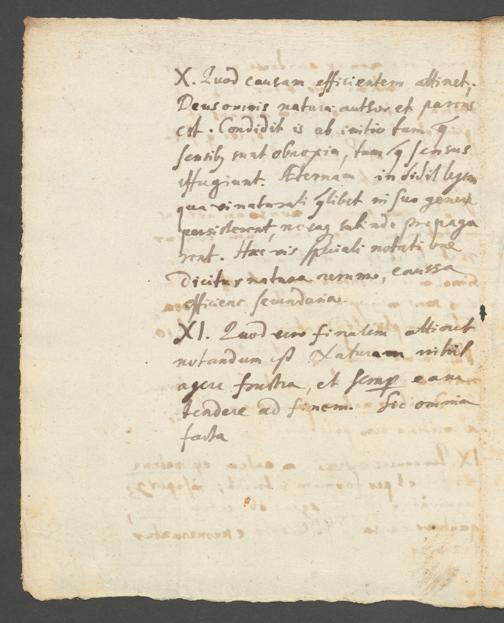 X. Quod causam efficientem attinet.
Deus omnis naturæ author et parens
est. Condidit is ab initio tam q̃
sensib9 sunt obnoxia, tam q̃ sensus
effugiunt. Æternam indidit legem
qua vi naturali q̃libet in suo genere
persisterent, seseq subinde propaga
rent. Hæc vis speciali notati one
dicitur natura rerum, caussa
efficiens secundaria.
XI. Quod vero finalem attinet
notandum est Naturam nihil
agere frustra, et semp eam
tendere ad finem. Sic omnia
facta